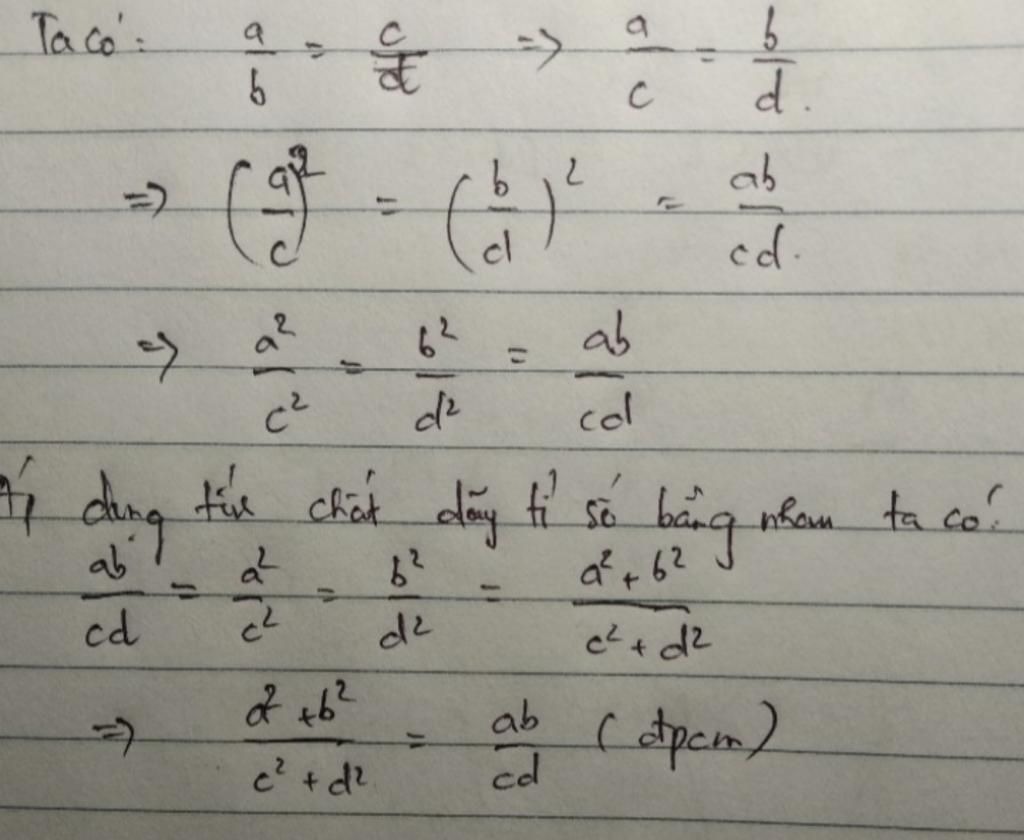 Ta có: a/b = c/d => a/c = b/d.
=> (a/c)² = (b/d)² = ab/cd.
=> a²/c² = b²/d² = ab/cd
Áp dụng tính chất dãy tỉ số bằng nhau ta có:
ab/cd = a²/c² = b²/d² = (a² + b²)/(c² + d²)
=> (a² + b²)/(c² + d²) = ab/cd (đpcm)